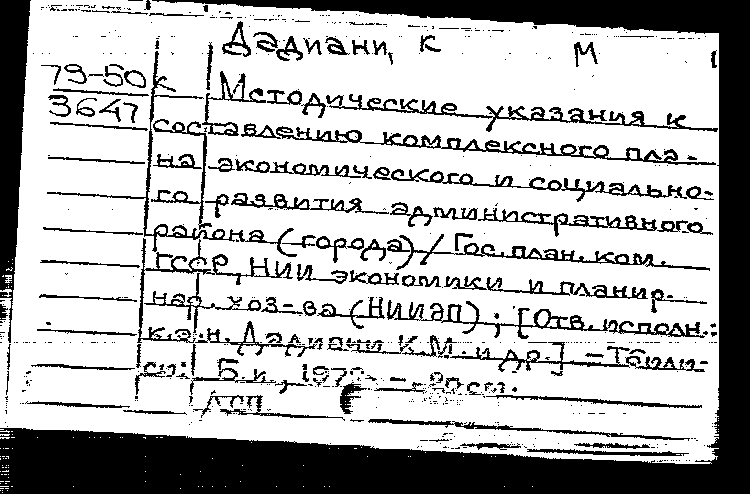 Дадиани, К М
79-50к Методические указания к
3647 составлению комплексного пла-
на экономического и социально-
го развития административного
района (города) / Гос. план. ком.
ГССР, НИИ экономики и планир.
нар. хоз-ва (НИИЭП); [Отв. исполн.:
к.э.н. Дадиани К.М. и др.] - Тбили-
си: Б.и.,